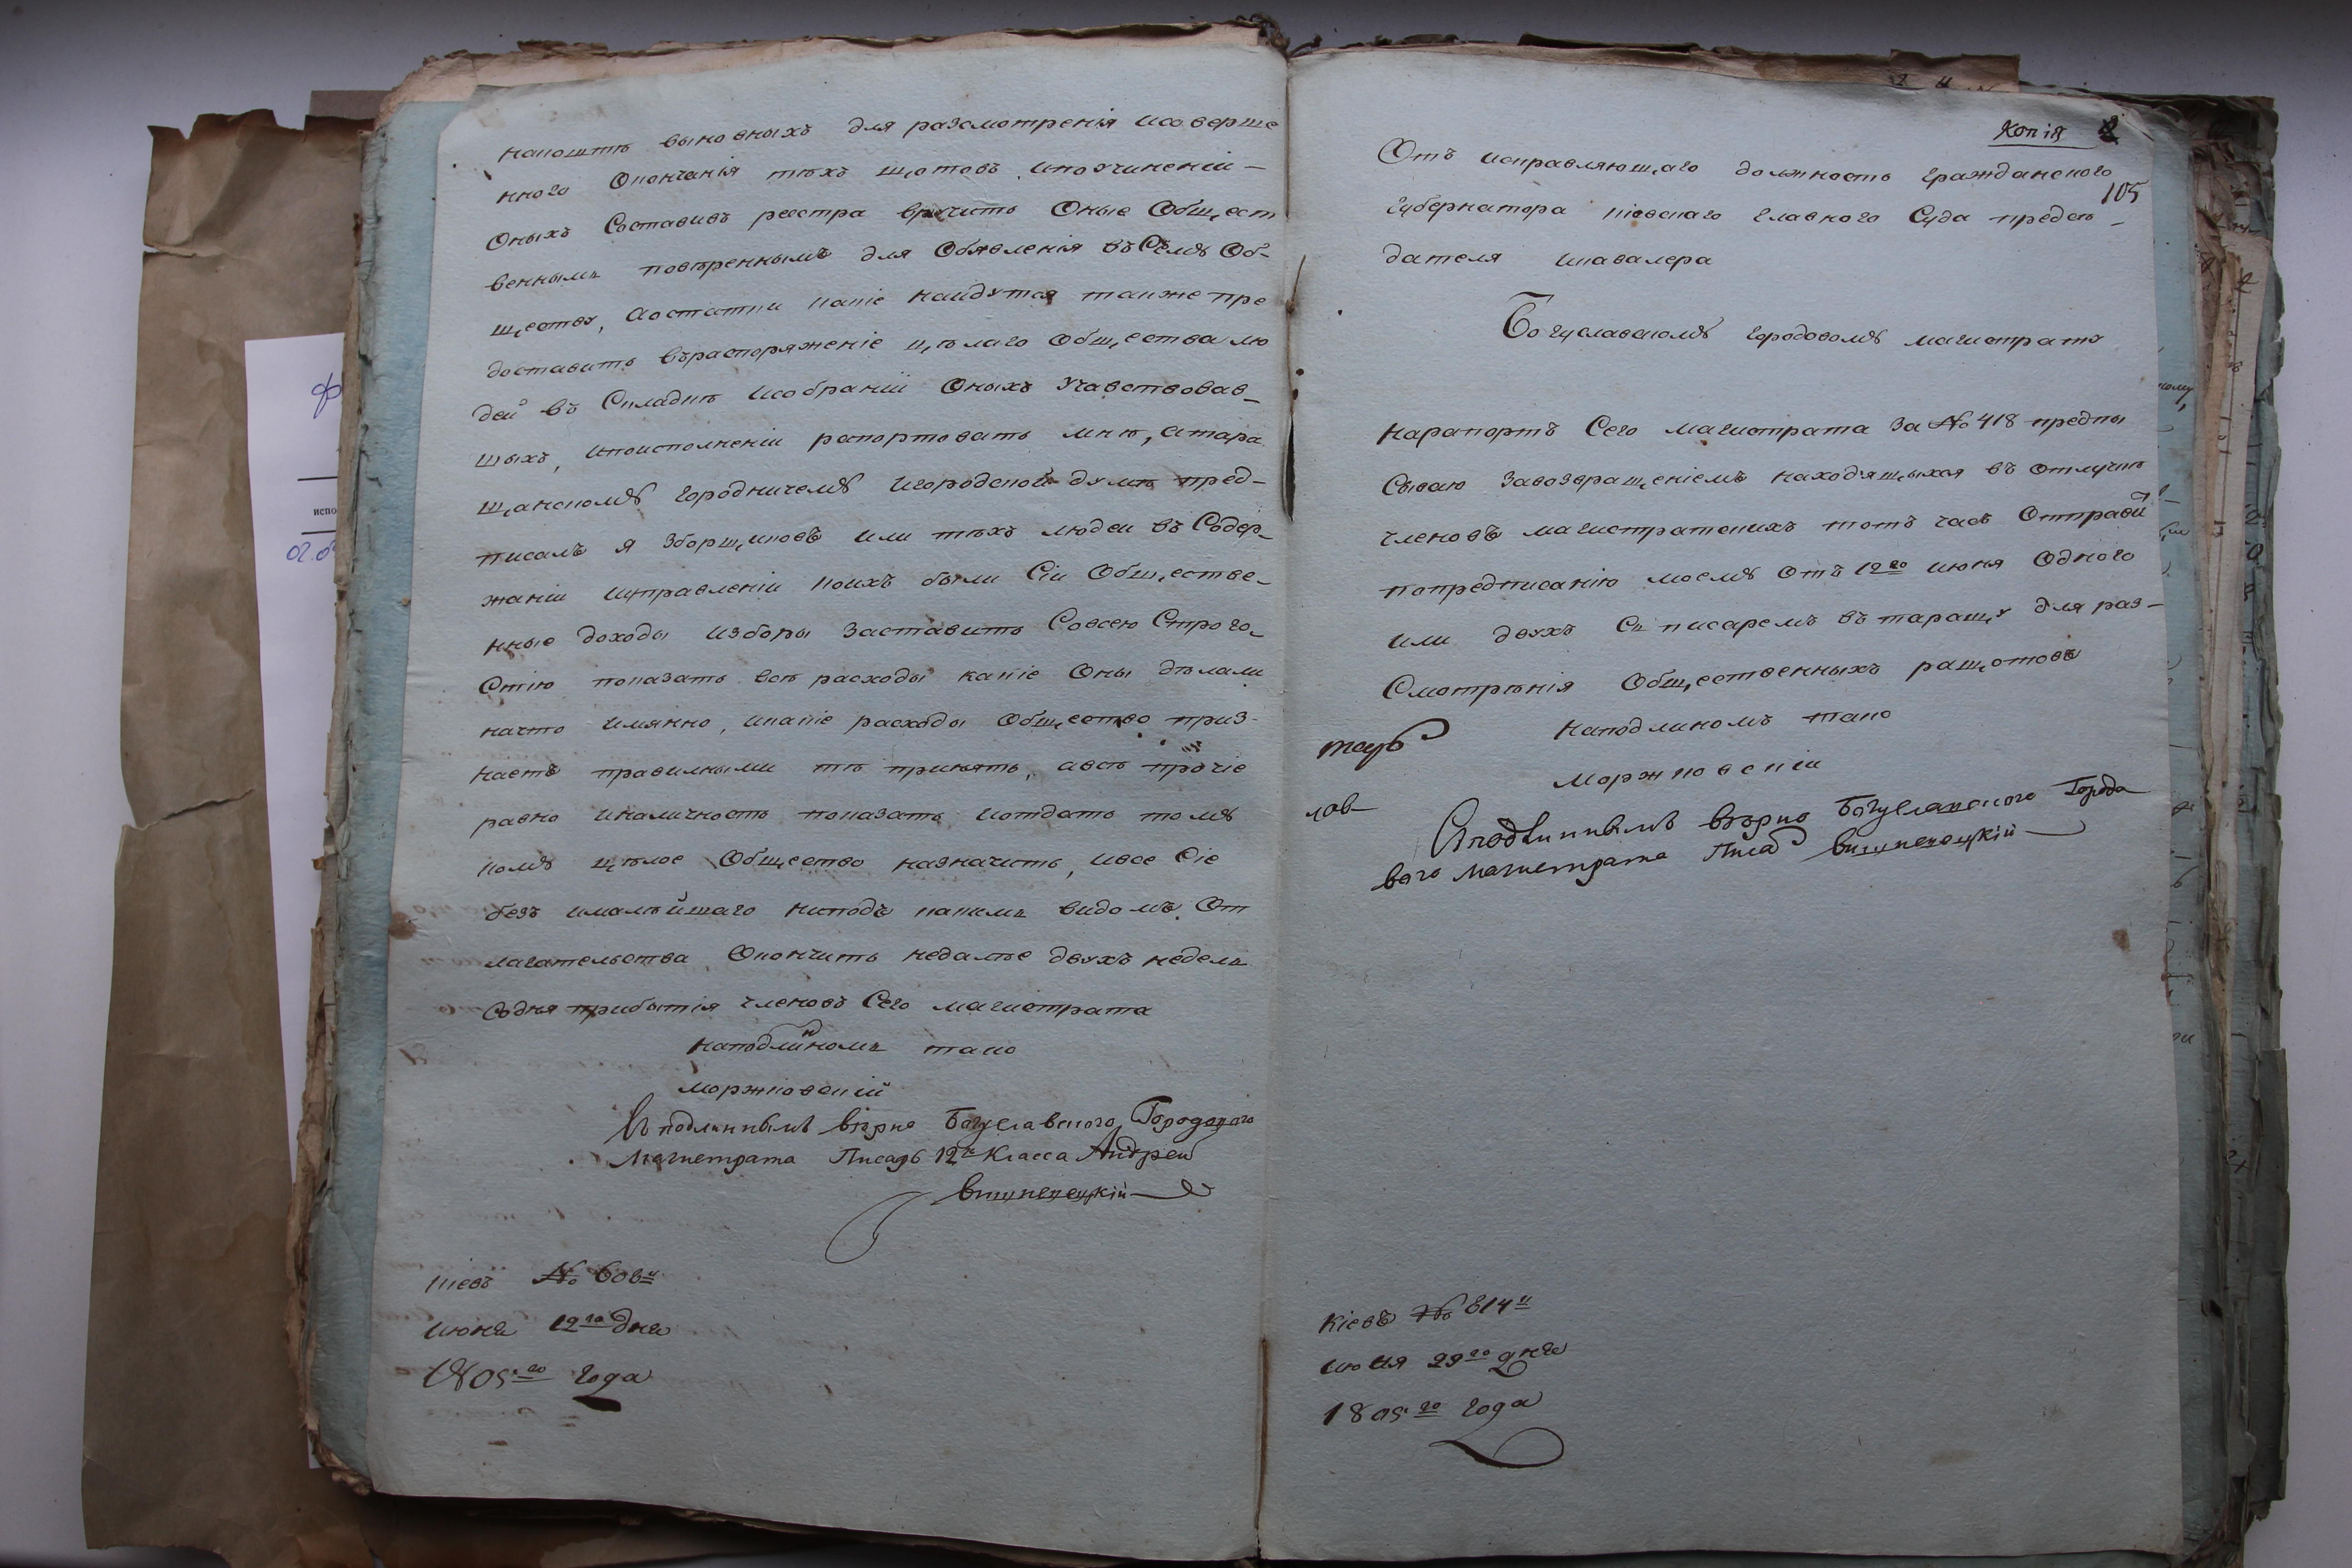 напоштѣ выновныхъ для разсмотренія исоверше
нного Окончанія тѣхъ щотовъ ипоучиненіи
Оныхъ Составивъ реестра вручить Оные Общест
веннымъ повѣреннымъ для Обявленія въ Семъ Об-
ществу, Аостатки какіе найдутся также пре
доставить въраспоряженіе цѣлаго Общества лю
дей въ Складкѣ исобраніи Оныхъ Участвовав_
шыхъ, ипоисполненіи рапортовать мнѣ, атара
щанскому городничему игородской думѣ пред-
писалъ я зборщиковъ или тѣхъ людеи въ Содер_
жаніи иуправленіи коихъ были Сіи Обществе_
нные доходы изборы заставить Совсею Строго_
Стію показать всѣ расходы какіе Оны дѣлали
начто имянно, икакіе расходы Общество приз-
наетъ правилными тѣ принять, авсѣ прочіе
равно иналичность показать иотдать тому
кому цѣлое Общество назначить, ивсе Сіе
безъ ималѣйшаго ниподъ какимъ видомъ От
лагательства Окончить недалѣе двухъ недель
Содня прибытія членовъ Сего магистрата
наподлинномъ тако
Моржковскій
Съ подлиннымъ вѣрно Богуславского Городового
Магистрата Писарь 12го Класса Андреи
кіевъ №
июня 12го дня
1805.го года
Копія
105
Отъ исправляющаго должность гражданского
губернатора кіевскаго главного Суда предсѣ
дателя икавалера
Богуславскому городовому магистрату
нарапортъ Сего магистрата за №418 предпи
Сываю завозвращеніемъ находящыхся въ Отлучкѣ
членовъ магистратскихъ тотъ часъ Отправи
попредписанію моему Отъ 12го июня Одного
или двухъ Съ писаремъ въ таращу для раз-
Смотрѣнія Общественныхъ ращотовъ
наподлиномъ тако
Моржковскіи
Сподлиннымъ вѣрно Богуславского Городо
вого Магистрата Писарь
кіевъ № 814и
июня 29го дня
1805.го года